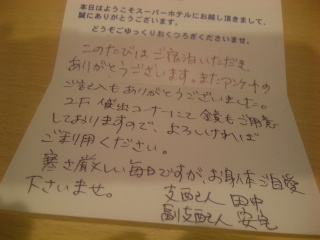 本日はようこそスーパーホテルにお越し頂きまして、
誠にありがとうございます。
どうぞごゆっくりおくつろぎくださいませ。
このたびはご宿泊いただき、
ありがとうございます。またアンケートの
ご記入もありがとうございました。
2F 貸出コーナーにて 鏡もご用意
しておりますので、よろしければ
ご利用ください。
寒さ厳しい毎日ですが、お身体ご自愛
下さいませ。
支配人 田中
副支配人